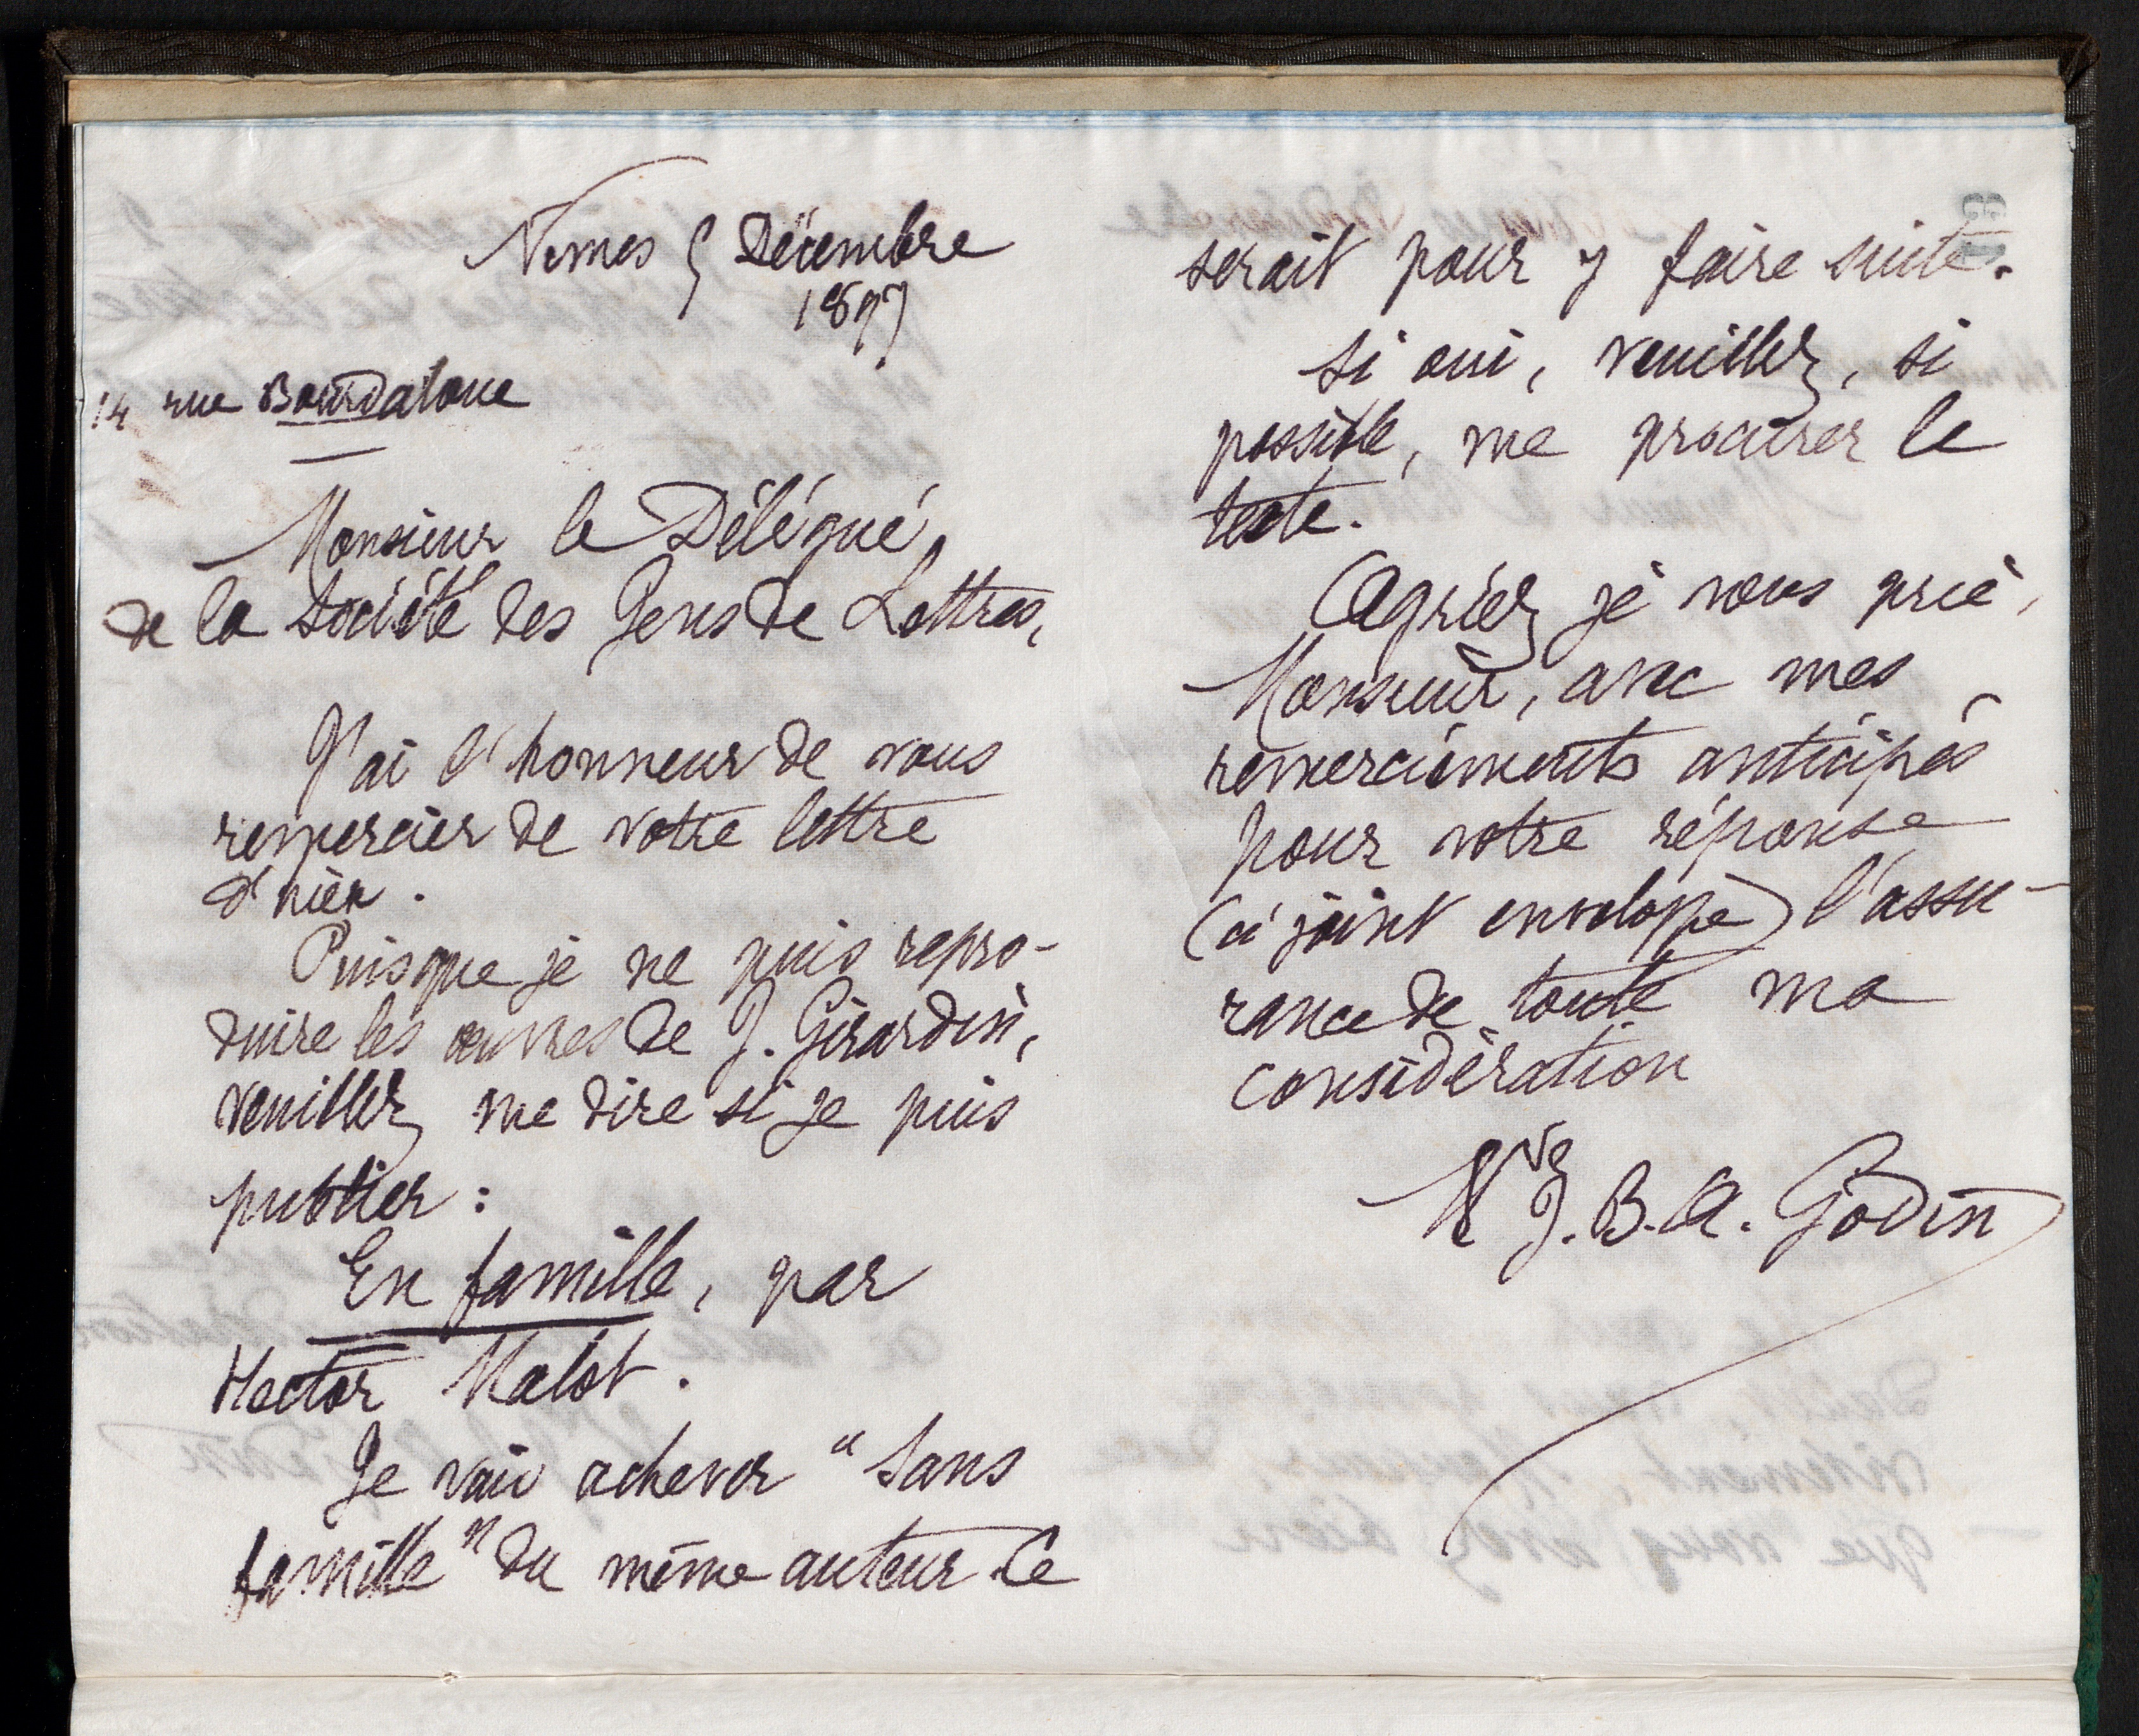 Nimes 9 Décembre
1897
14 rue Bourdaloue
Monsieur le Délégué
de la Société des Gens de Lettres,
J'ai l'honneur de vous
remercier de votre lettre
d'hier.
Puisque je ne puis repro-
duire les œuvres de J. Girardin,
veuillez me dire si je puis
publier :
En famille, par
Hector Malot.
Je vais achever "Sans
famille" du même auteur. Ce
serait pour y faire suite.
Si oui, veuillez, si
possible, me procurer le
texte.
Agréez je vous prie,
Monsieur, avec mes
remerciements anticipés
pour votre réponse
(ci joint envelope) l'assu-
rance de toute ma
considération
Vve J. B. A. Godin